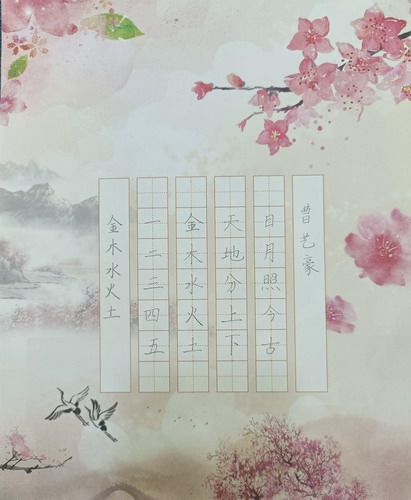 曹艺豪
日月照今古
天地分上下
金木水火土
一二三四五
金木水火土